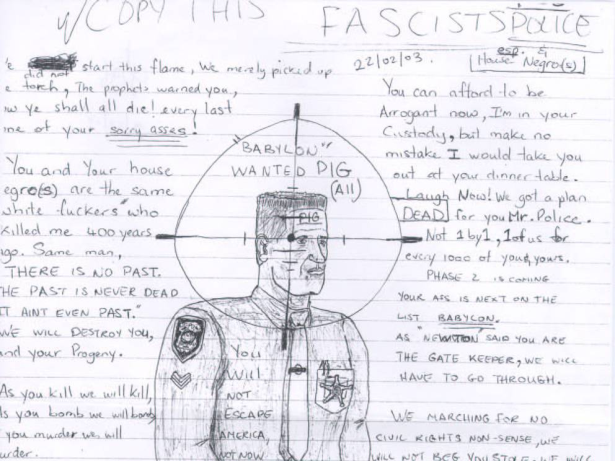 w/ COPY THIS
FASCISTS POLICE
esp. &
House Negro(s)
22/02/03.
did not start this flame, We merely picked up
torch, The prophets warned you,
ye shall all die! every last
of your sorry asses.
You and Your house
egro(s) are the same
white fuckers" who
killed me 400 years
ago. Same man,
THERE IS NO PAST.
HE PAST IS NEVER DEAD
T AINT EVEN PAST."
WE WILL DESTROY YOU,
and your Progeny.
As you kill we will kill,
As you bomb we will bomb
you murder we will
urder.
BABYLON"
WANTED PIG
(All)
PIG
You
Will
NOT
ESCAPE
AMERICA,
NOT NOW
You can afford to be
Arrogant now, I'm in your
Custody, but make no
mistake I would take you
out at your dinner table.
Laugh Now! We got a plan
DEAD for you Mr. Police.
Not 1 by 1, 1 of us for
every 1000 of you & yours.
PHASE 2 IS COMING
YOUR ASS IS NEXT ON THE
LIST BABYLON.
AS SAID YOU ARE
THE GATE KEEPER, WE WILL
HAVE TO GO THROUGH.
WE MARCHING FOR NO
CIVIL RIGHTS NON-SENSE, WE
WILL NOT BEG YOU WE WILL